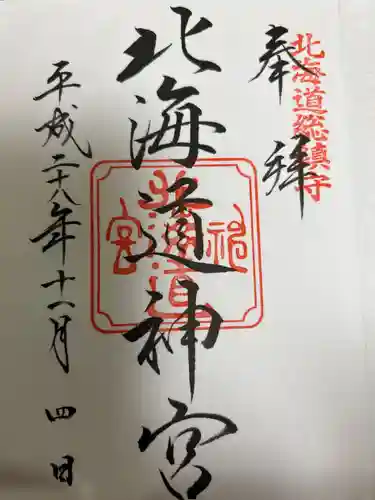 北海道総鎮守
奉拝
北海道神宮
北海道神宮
平成二十八年十一月四日